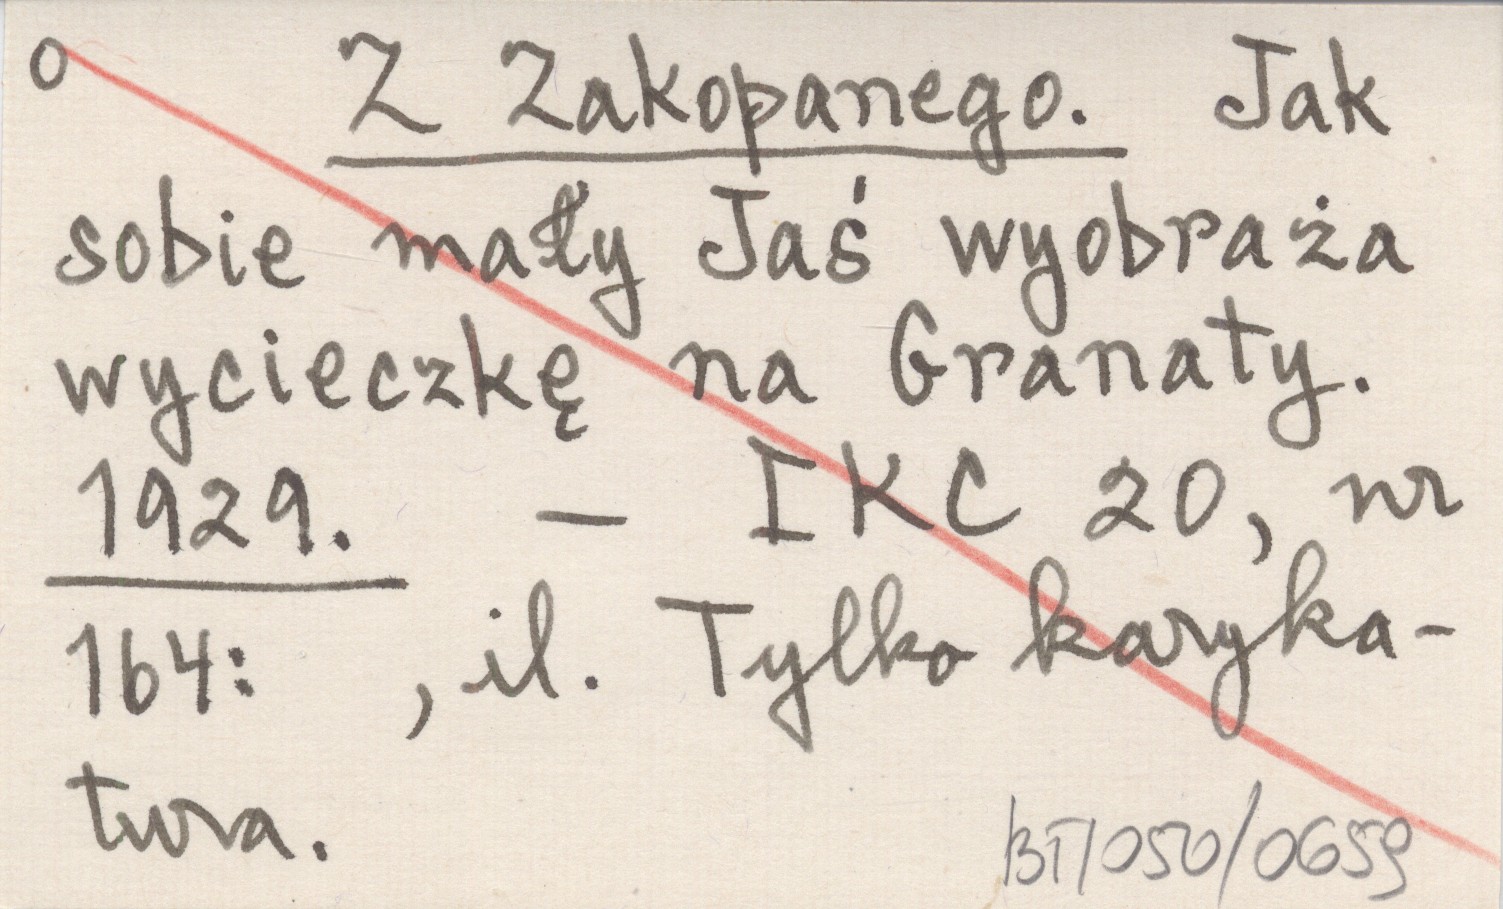 o Z Zakopanego. Jak
sobie mały Jaś wyobraża
wycieczkę na Granaty.
1929. — IKC 20, nr
164: , il. Tylko karyka-
tura.
BT/050/0659